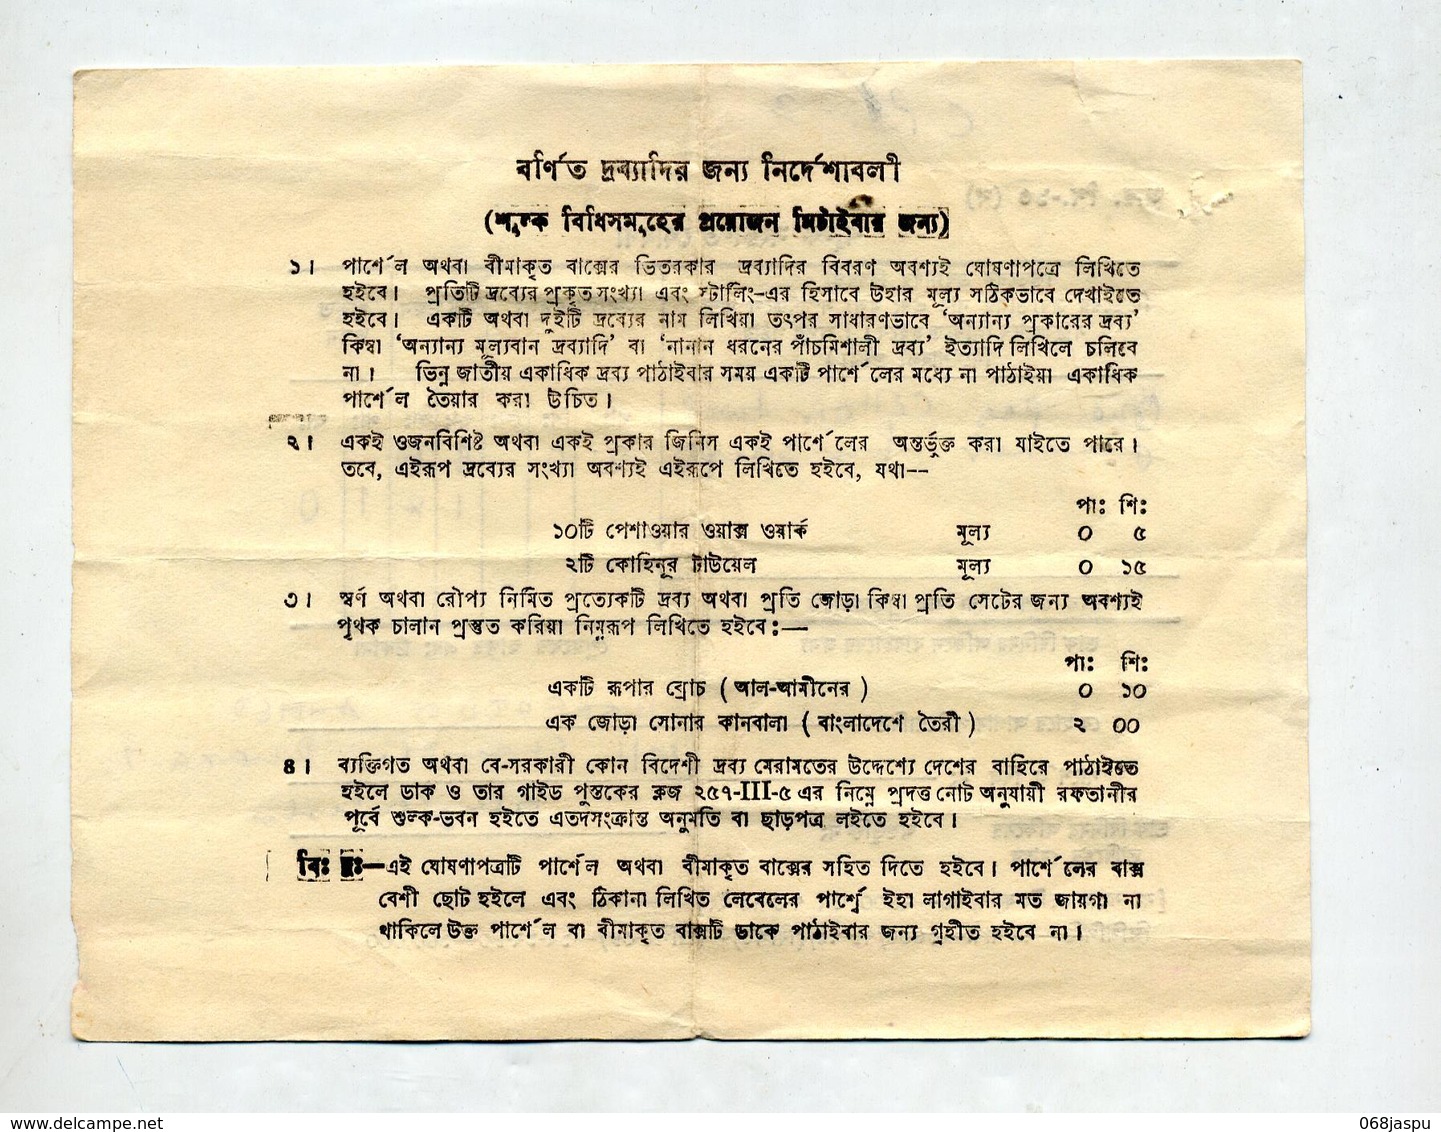 বর্ণিত দ্রব্যাদির জন্য নির্দেশাবলী
(শুল্ক বিধিসমূহের প্রয়োজন মিটাইবার জন্য)
১। পার্শেল অথবা বীমাকৃত বাক্সের ভিতরকার দ্রব্যাদির বিবরণ অবশ্যই ঘোষণাপত্রে লিখিতে
হইবে। প্রতিটি দ্রব্যের প্রকৃত সংখ্যা এবং স্টার্লিং-এর হিসাবে উহার মূল্য সঠিকভাবে দেখাইতে
হইবে। একটি অথবা দুইটি দ্রব্যের নাম লিখিয়া তৎপর সাধারণভাবে ‘অন্যান্য প্রকারের দ্রব্য’
কিম্বা ‘অন্যান্য মূল্যবান দ্রব্যাদি’ বা ‘নানান ধরনের পাঁচমিশালী দ্রব্য’ ইত্যাদি লিখিলে চলিবে
না। ভিন্ন জাতীয় একাধিক দ্রব্য পাঠাইবার সময় একটি পার্শেলের মধ্যে না পাঠাইয়া একাধিক
পার্শেল তৈয়ার করা উচিত।
২। একই ওজনবিশিষ্ট অথবা একই প্রকার জিনিস একই পার্শেলের অন্তর্ভুক্ত করা যাইতে পারে।
তবে, এইরূপ দ্রব্যের সংখ্যা অবশ্যই এইরূপে লিখিতে হইবে, যথা--
পাঃ শিঃ
১০টি পেশাওয়ার ওয়াক্স ওয়ার্ক মূল্য ০ ৫
২টি কোহিনূর টাউয়েল মূল্য ০ ১৫
৩। স্বর্ণ অথবা রৌপ্য নির্মিত প্রত্যেকটি দ্রব্য অথবা প্রতি জোড়া কিম্বা প্রতি সেটের জন্য অবশ্যই
পৃথক চালান প্রস্তুত করিয়া নিম্নরূপ লিখিতে হইবে:—
পা: শি:
একটি রূপার ব্রোচ ( আল-আমীনের ) ০ ১০
এক জোড়া সোনার কানবালা ( বাংলাদেশে তৈরী ) ২ ০০
৪। ব্যক্তিগত অথবা বে-সরকারী কোন বিদেশী দ্রব্য মেরামতের উদ্দেশ্যে দেশের বাহিরে পাঠাইতে
হইলে ডাক ও তার গাইড পুস্তকের ক্লজ ২৫৭-III-৫ এর নিম্নে প্রদত্ত নোট অনুযায়ী রফতানীর
পূর্বে শুল্ক-ভবন হইতে এতদসংক্রান্ত অনুমতি বা ছাড়পত্র লইতে হইবে।
বিঃ দ্রঃ—এই ঘোষণাপত্রটি পার্শেল অথবা বীমাকৃত বাক্সের সহিত দিতে হইবে। পার্শেলের বাক্স
বেশী ছোট হইলে এবং ঠিকানা লিখিত লেবেলের পার্শ্বে ইহা লাগাইবার মত জায়গা না
থাকিলে উক্ত পার্শেল বা বীমাকৃত বাক্সটি ডাকে পাঠাইবার জন্য গৃহীত হইবে না।
www.delcampe.net
068jaspu